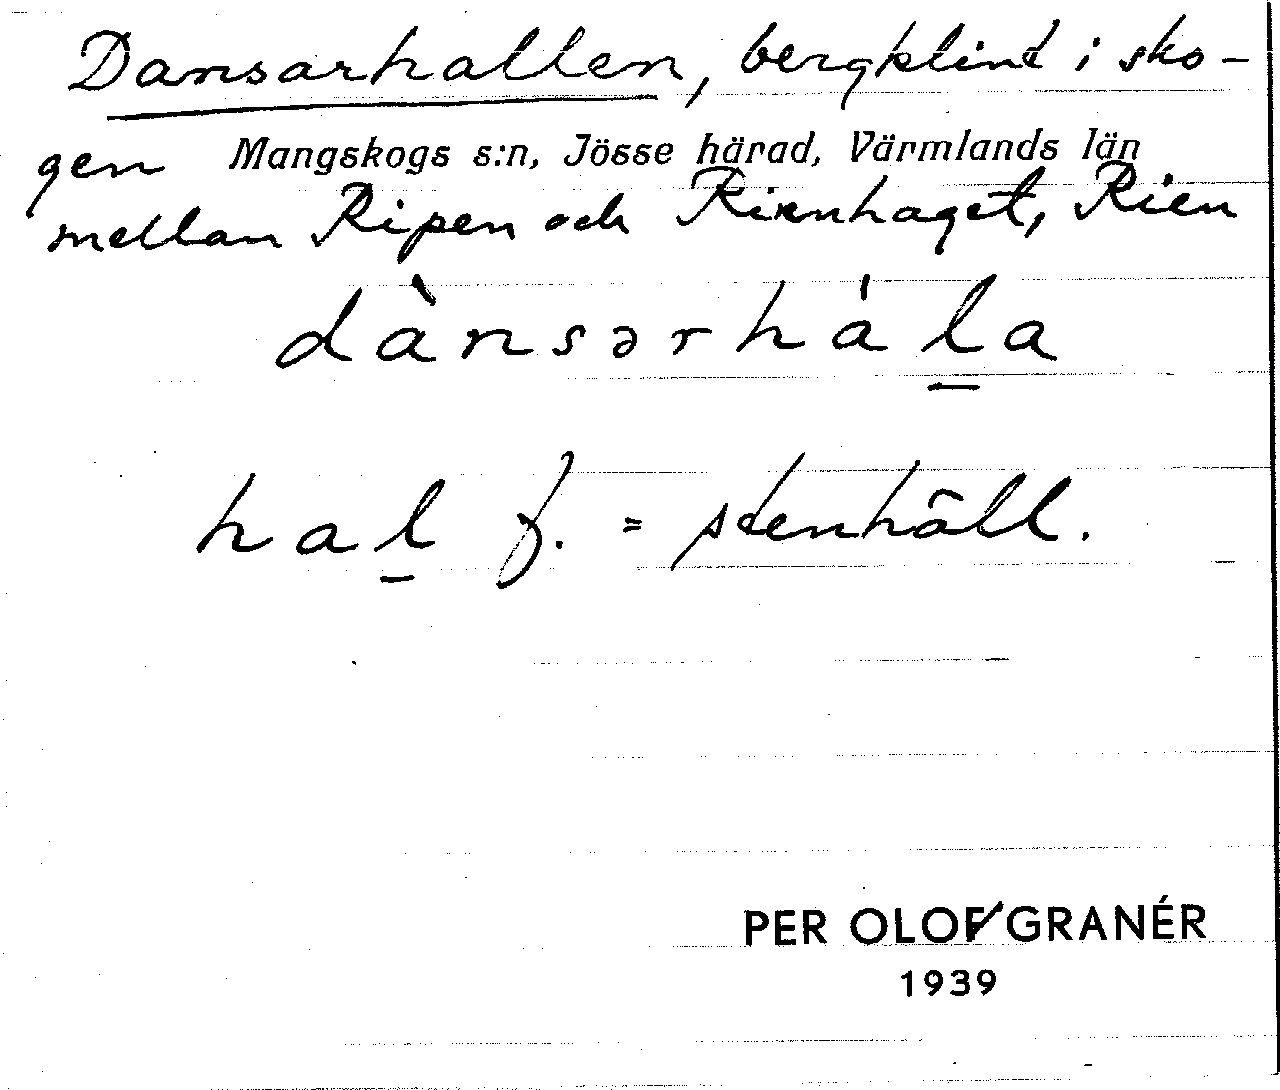 Dansarhallen, bergklint i sko-
gen Mangskogs s:n, Jösse härad, Värmlands län
mellan Ripen och Rienhaget, Rien
dànsərhá̱la
hal̲ f. = stenhäll.
PER OLOF GRANÉR
1939